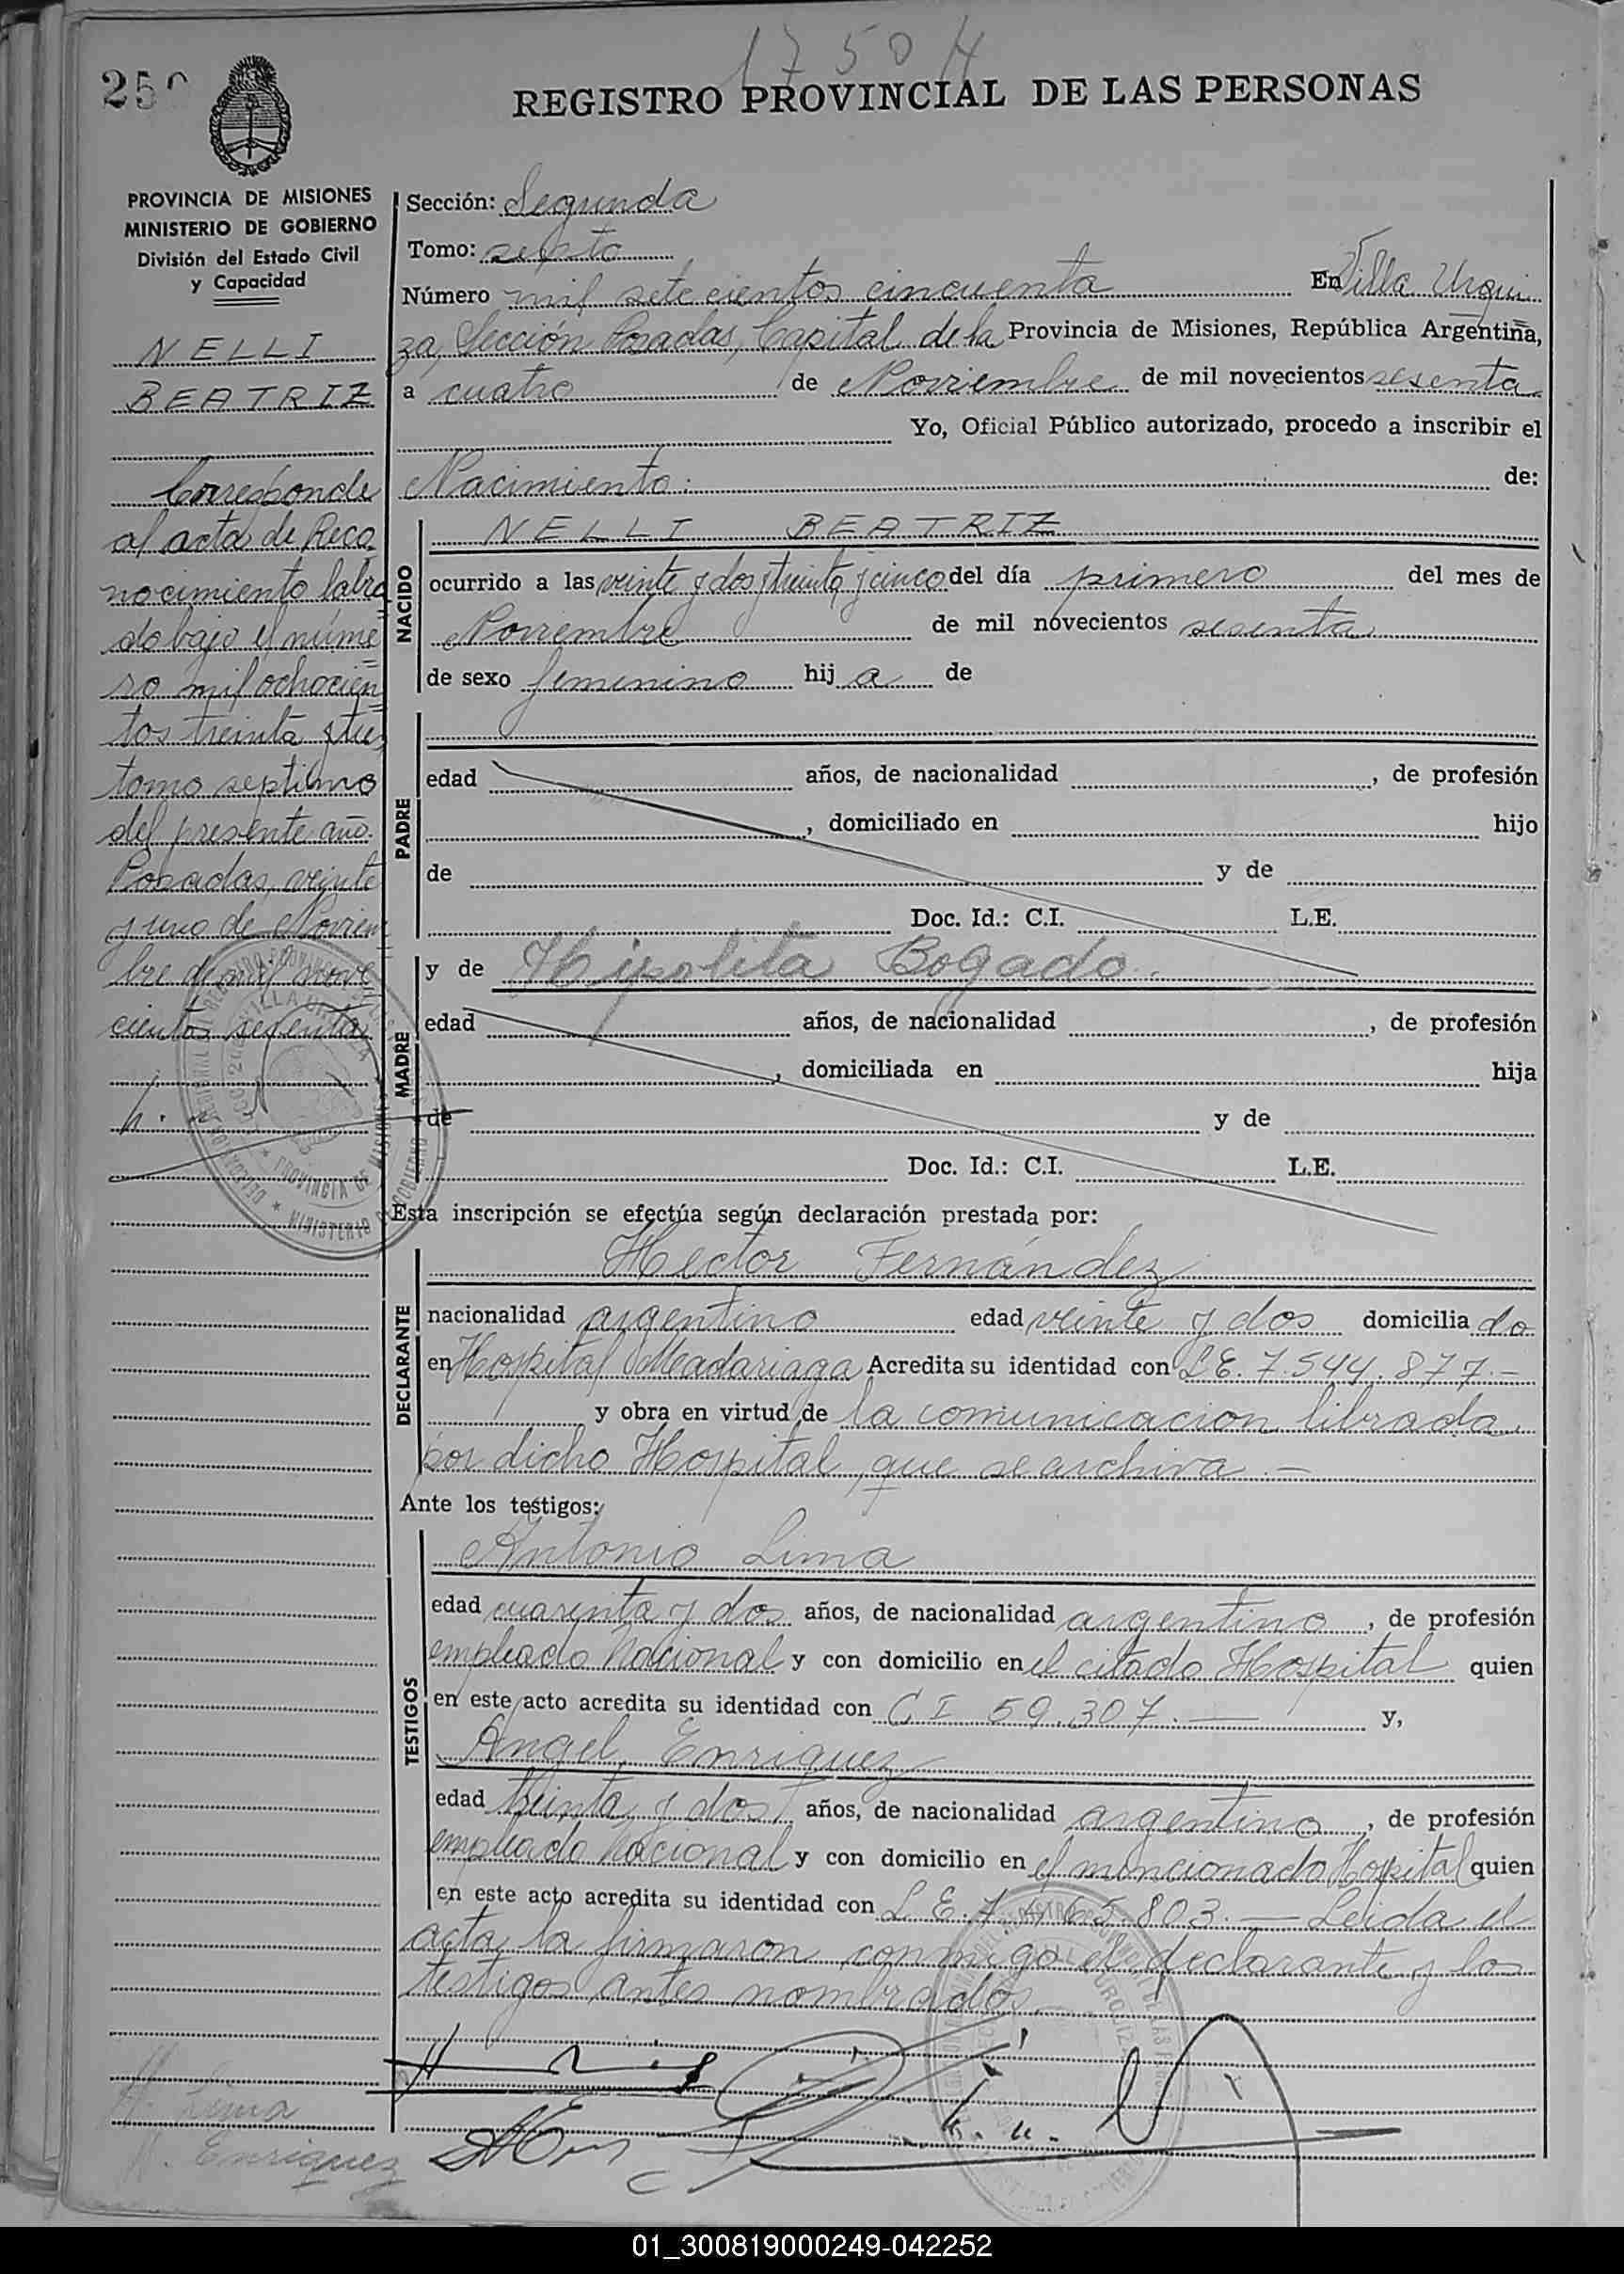 1750 H
250
REGISTRO PROVINCIAL DE LAS PERSONAS
PROVINCIA DE MISIONES
MINISTERIO DE GOBIERNO
División del Estado Civil
y Capacidad
NELLI
BEATRIZ
Corresponde
al acta de Reco
nocimiento labra
do bajo el núme
ro mil ochocien
tos treinta y tres
tomo septimo
del presente año.
Posadas, veinte
y uno de Noviem
bre de mil nove
cientos sesenta
Sección: Segunda
Tomo: septo
Número mil setecientos cincuenta En Villa Urqui
za, Sección Posadas, Capital de la Provincia de Misiones, República Argentina,
a cuatro de Noviembre de mil novecientos sesenta
Yo, Oficial Público autorizado, procedo a inscribir el
Nacimiento: de:
NACIDO
NELLI BEATRIZ
ocurrido a las veinte y dos y treinta y cinco del día primero del mes de
Noviembre de mil novecientos sesenta
de sexo femenino hij a de
PADRE
edad años, de nacionalidad , de profesión
, domiciliado en hijo
de y de
Doc. Id.: C.I. L.E.
MADRE
y de Hipolita Bogado.
edad años, de nacionalidad , de profesión
, domiciliada en hija
de y de
Doc. Id.: C.I. L.E.
Esta inscripción se efectúa según declaración prestada por:
DECLARANTE
Hector Fernández
nacionalidad argentino edad veinte y dos domicilia do
en Hospital Madariaga Acredita su identidad con L.E. 7.544.877.-
y obra en virtud de la comunicacion librada
por dicho Hospital, que se archiva.-
Ante los testigos:
TESTIGOS
Antonio Lima
edad cuarenta y dos años, de nacionalidad argentino, de profesión
empleado Nacional y con domicilio en el citado Hospital quien
en este acto acredita su identidad con C I 59.307.- y,
Angel Enriquez
edad treinta y dos años, de nacionalidad argentino, de profesión
empleado Nacional y con domicilio en el mencionado Hospital quien
en este acto acredita su identidad con L.E. 7.465.803.- Leida el
acta, la firmaron conmigo el declarante y los
testigos antes nombrados.
A. Lima
A. Enriquez
01_300819000249-042252